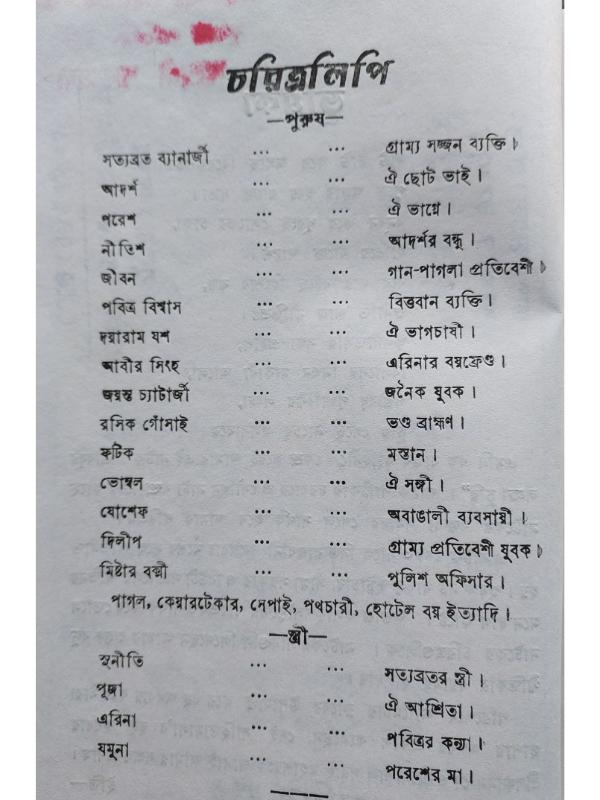 চরিত্রলিপি
—পুরুষ—
সত্যব্রত ব্যানার্জী ... ... গ্রাম্য সজ্জন ব্যক্তি।
আদর্শ ... ... ঐ ছোট ভাই।
পরেশ ... ... ঐ ভাগ্নে।
নীতিশ ... ... আদর্শর বন্ধু।
জীবন ... ... গান-পাগলা প্রতিবেশী।
পবিত্র বিশ্বাস ... ... বিত্তবান ব্যক্তি।
দয়ারাম যশ ... ... ঐ ভাগচাষী।
আবীর সিংহ ... ... এরিনার বয়ফ্রেণ্ড।
জয়ন্ত চ্যাটার্জী ... ... জনৈক যুবক।
রসিক গোঁসাই ... ... ভণ্ড ব্রাহ্মণ।
ফটিক ... ... মস্তান।
ভোম্বল ... ... ঐ সঙ্গী।
যোশেফ ... ... অবাঙালী ব্যবসায়ী।
দিলীপ ... ... গ্রাম্য প্রতিবেশী যুবক।
মিষ্টার বক্সী ... ... পুলিশ অফিসার।
পাগল, কেয়ারটেকার, সেপাই, পথচারী, হোটেল বয় ইত্যাদি।
—স্ত্রী—
সুনীতি ... ... সত্যব্রতর স্ত্রী।
পূজা ... ... ঐ আশ্রিতা।
এরিনা ... ... পবিত্রর কন্যা।
যমুনা ... ... পরেশের মা।